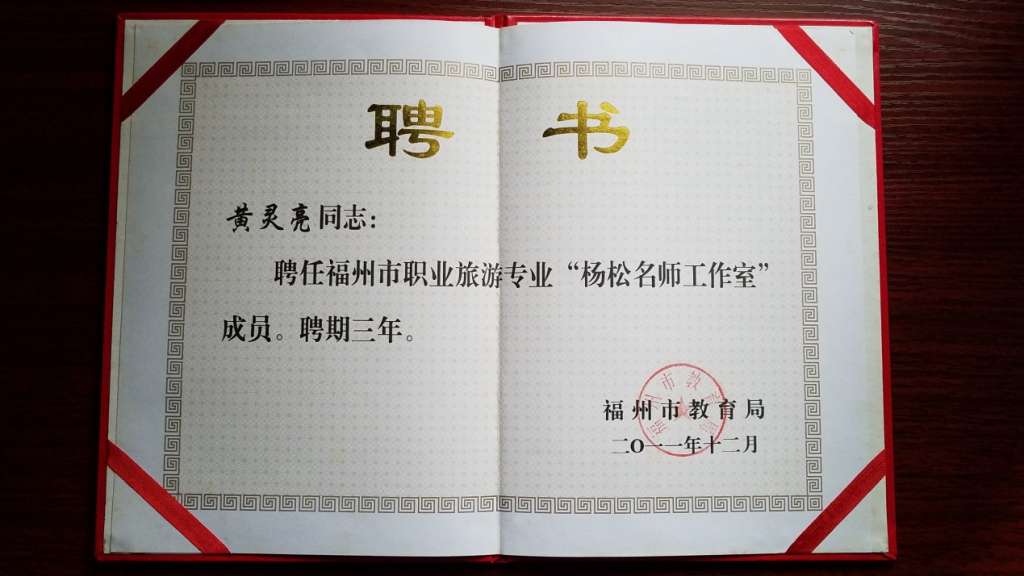 聘 书
黄灵亮同志：
聘任福州市职业旅游专业“杨松名师工作室”
成员。聘期三年。
福州市教育局
二O一一年十二月
福州市教育局